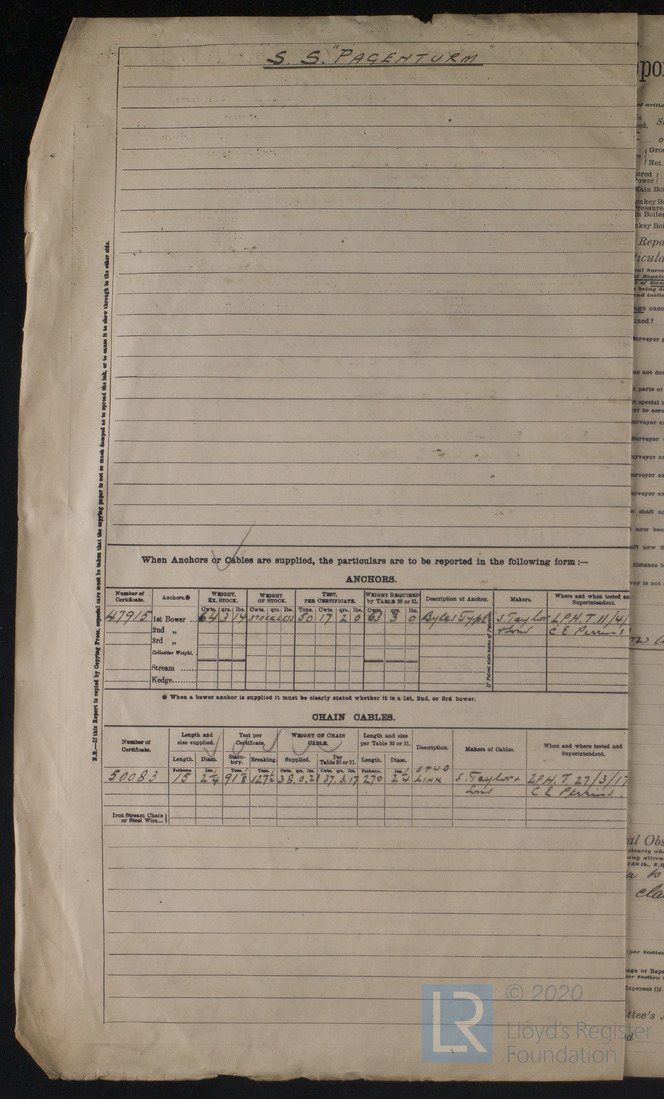 S. S. "PAGENTURM"
N.B.—If this Report is copied by Copying Press, especial care must be taken that the copying paper is not so much damped as to spread the ink, or to cause it to show through to the other side.
When Anchors or Cables are supplied, the particulars are to be reported in the following form:—
ANCHORS.
Number of Certificate. Anchors.* WEIGHT, EX. STOCK. WEIGHT OF STOCK. TEST, PER CERTIFICATE. WEIGHT REQUIRED BY TABLE 30 or 31. Description of Anchor. Makers. Where and when tested and Superintendent.
Cwts. qrs. lbs. Cwts. qrs. lbs. Tons. Cwts. qrs. lbs. Cwts. qrs. lbs.
47915 1st Bower .. 64 3 14 STOCKLESS 50 17 2 0 63 3 0 Byers Type S. Taylor L.P.H.T. 11/4/
2nd „ & Sons C E Perkins
3rd „
Collective Weight.
Stream ......
Kedge........
* When a bower anchor is supplied it must be clearly stated whether it is a 1st, 2nd, or 3rd bower.
CHAIN CABLES.
Number of Certificate. Length and size supplied. Test per Certificate. WEIGHT OF CHAIN CABLE. Length and size per Table 30 or 31. Description. Makers of Cables. When and where tested and Superintendent.
Length. Diam. Statutory. Breaking. Supplied. Per Table 30 or 31. Length. Diam.
Fathoms. Ins. Tons. Tons. Cwts. qrs. lbs. Cwts. qrs. lbs. Fathoms. Ins. STUD
50083 15 270 LINK S. Taylor & L.P.H.T. 27/3/17
Sons C E Perkins.
Iron Stream Chain or Steel Wire...
© 2020
Lloyd's Register
Foundation
LR